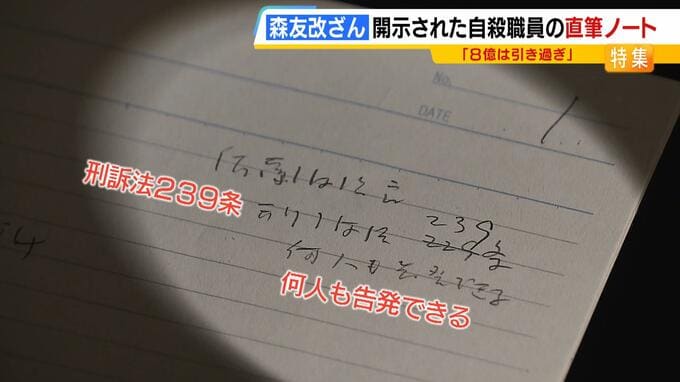 森友改ざん 開示された自殺職員の直筆ノート
「8億は引き過ぎ」 特集
No.
DATE
239
229条
何人も告発できる
刑訴法239条
何人も告発できる